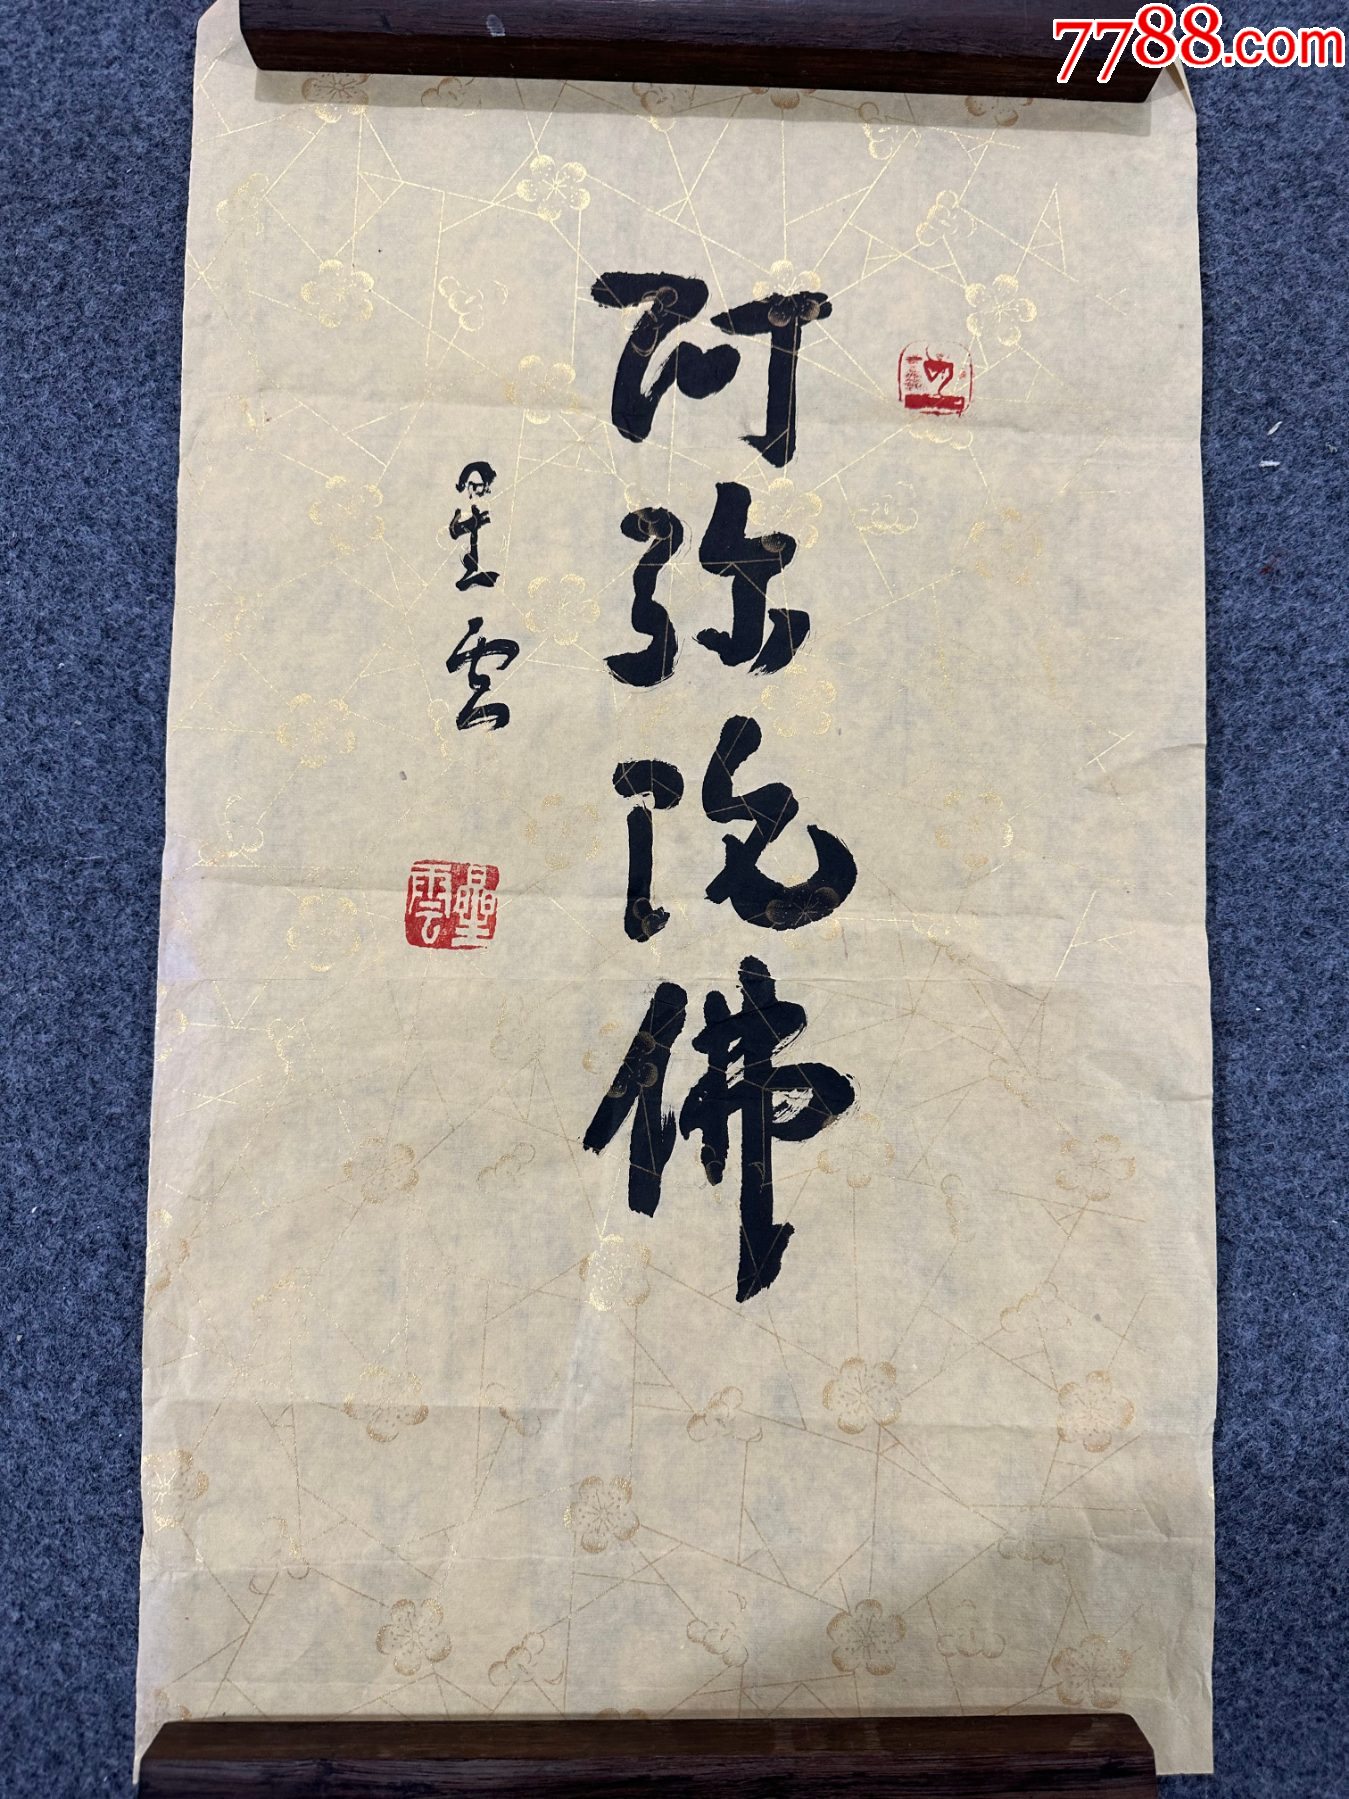 7788.com
阿弥陀佛
星雲
星雲